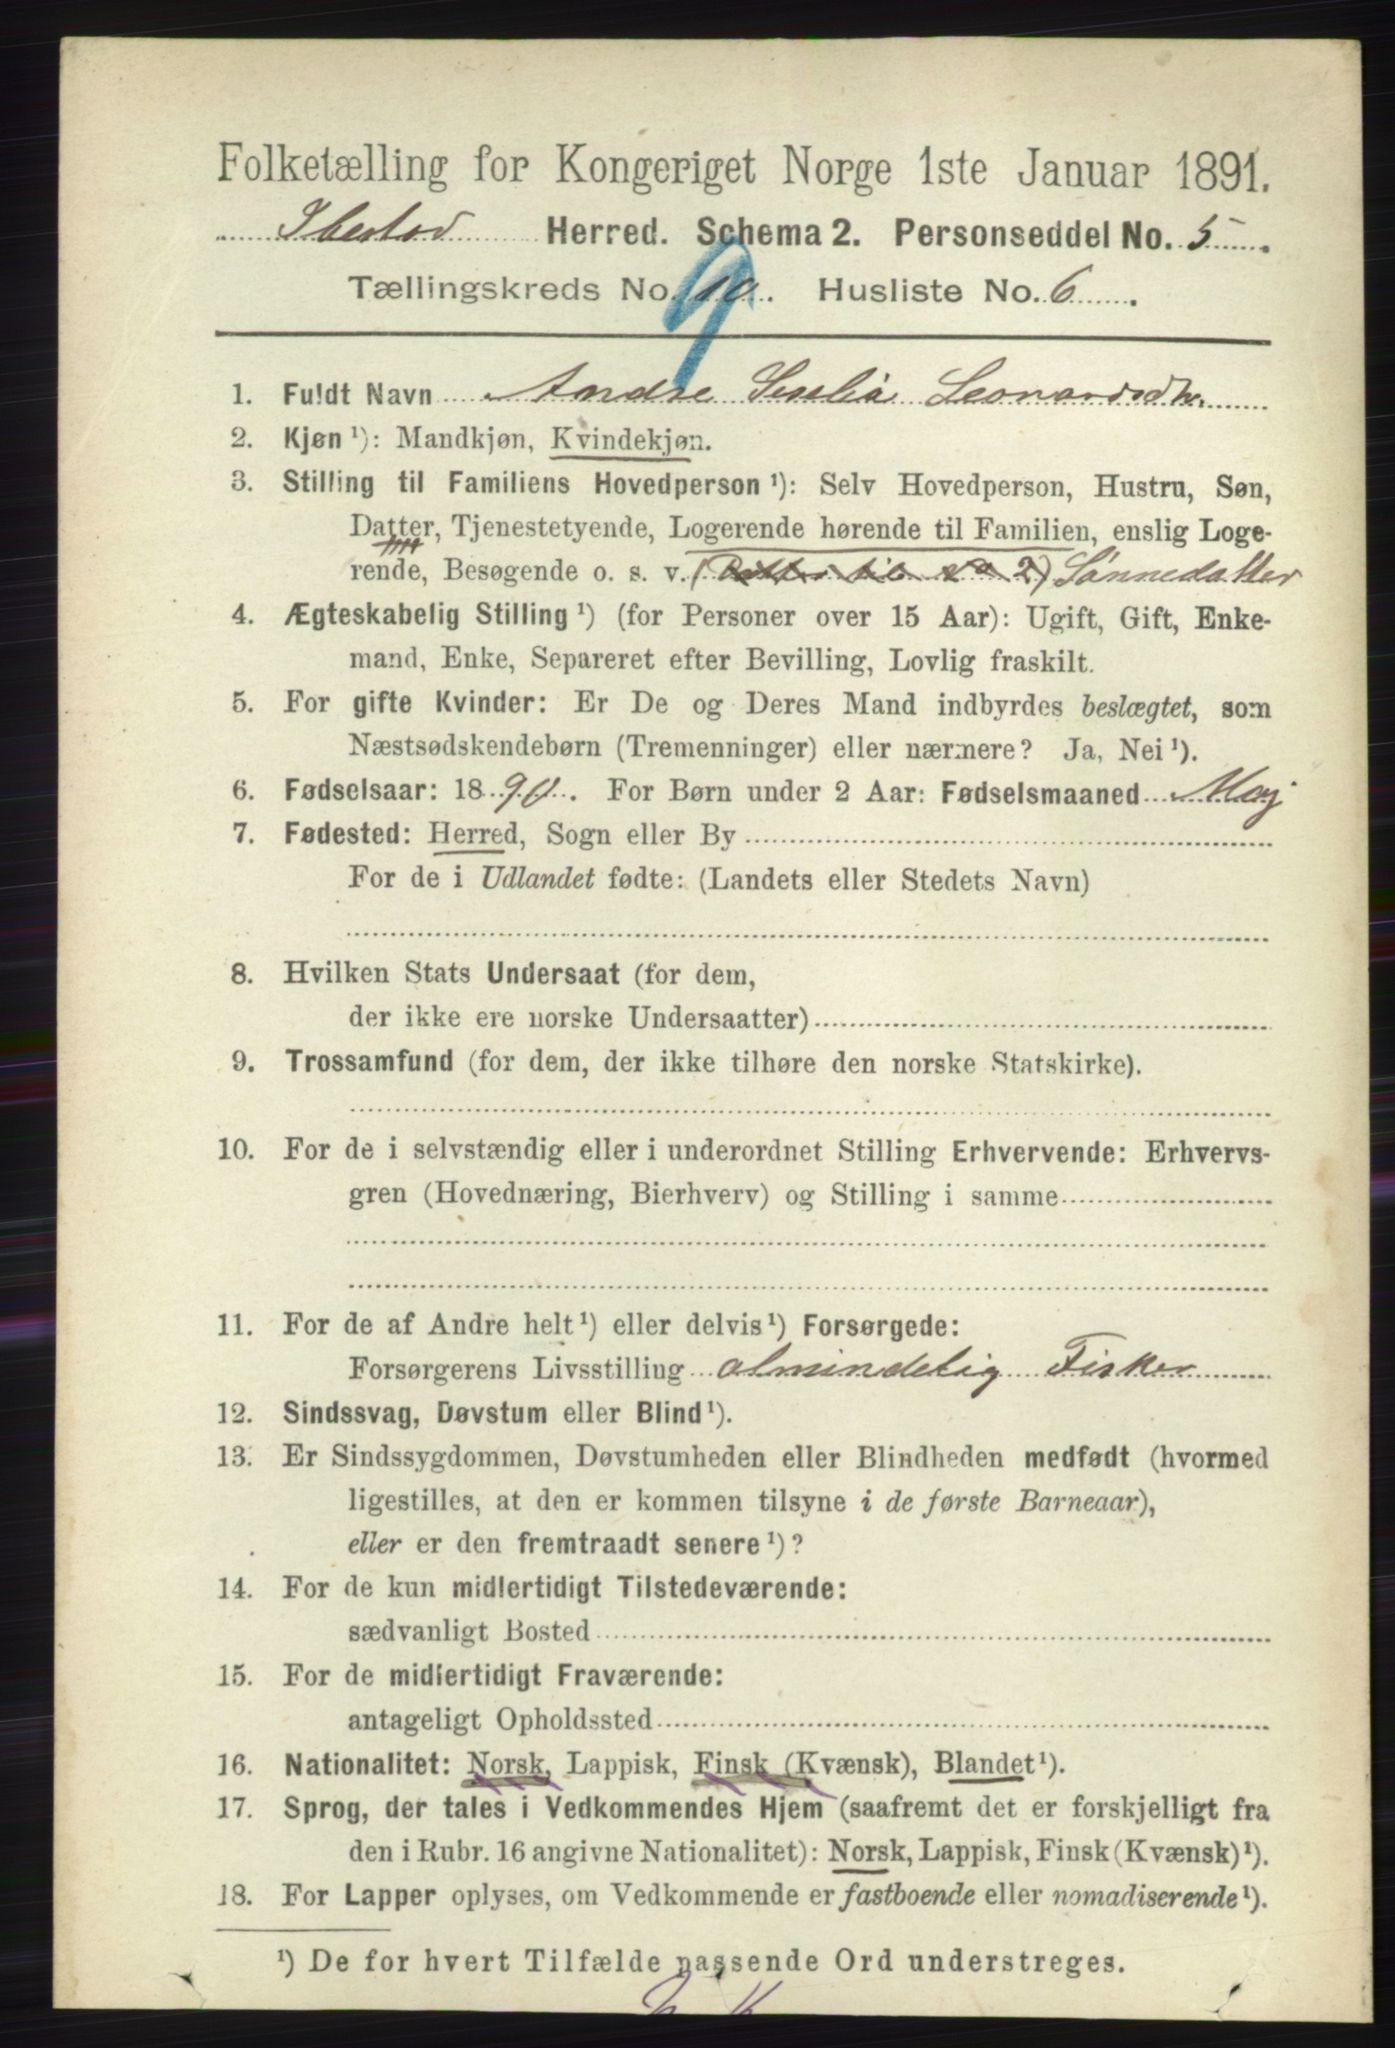 Folketælling for Kongeriget Norge 1ste Januar 1891.
Ibestad Herred. Schema 2. Personseddel No. 5
Tællingskreds No. 10. Husliste No. 6
9
1. Fuldt Navn Andre Seselia Leonardsdtr.
2. Kjøn ¹): Mandkjøn, Kvindekjøn.
3. Stilling til Familiens Hovedperson ¹): Selv Hovedperson, Hustru, Søn,
Datter, Tjenestetyende, Logerende hørende til Familien, enslig Loge-
rende, Besøgende o. s. v. (Datter til No 2) Sønnedatter
4. Ægteskabelig Stilling ¹) (for Personer over 15 Aar): Ugift, Gift, Enke-
mand, Enke, Separeret efter Bevilling, Lovlig fraskilt.
5. For gifte Kvinder: Er De og Deres Mand indbyrdes beslægtet, som
Næstsødskendebørn (Tremenninger) eller nærmere? Ja, Nei ¹).
6. Fødselsaar: 1890. For Børn under 2 Aar: Fødselsmaaned Maj
7. Fødested: Herred, Sogn eller By
For de i Udlandet fødte: (Landets eller Stedets Navn)
8. Hvilken Stats Undersaat (for dem,
der ikke ere norske Undersaatter)
9. Trossamfund (for dem, der ikke tilhøre den norske Statskirke).
10. For de i selvstændig eller i underordnet Stilling Erhvervende: Erhvervs-
gren (Hovednæring, Bierhverv) og Stilling i samme
11. For de af Andre helt ¹) eller delvis ¹) Forsørgede:
Forsørgerens Livsstilling almindelig Fisker
12. Sindssvag, Døvstum eller Blind ¹).
13. Er Sindssygdommen, Døvstumheden eller Blindheden medfødt (hvormed
ligestilles, at den er kommen tilsyne i de første Barneaar),
eller er den fremtraadt senere ¹)?
14. For de kun midlertidigt Tilstedeværende:
sædvanligt Bosted
15. For de midlertidigt Fraværende:
antageligt Opholdssted
16. Nationalitet: Norsk, Lappisk, Finsk (Kvænsk), Blandet ¹).
17. Sprog, der tales i Vedkommendes Hjem (saafremt det er forskjelligt fra
den i Rubr. 16 angivne Nationalitet): Norsk, Lappisk, Finsk (Kvænsk) ¹).
18. For Lapper oplyses, om Vedkommende er fastboende eller nomadiserende ¹).
¹) De for hvert Tilfælde passende Ord understreges.